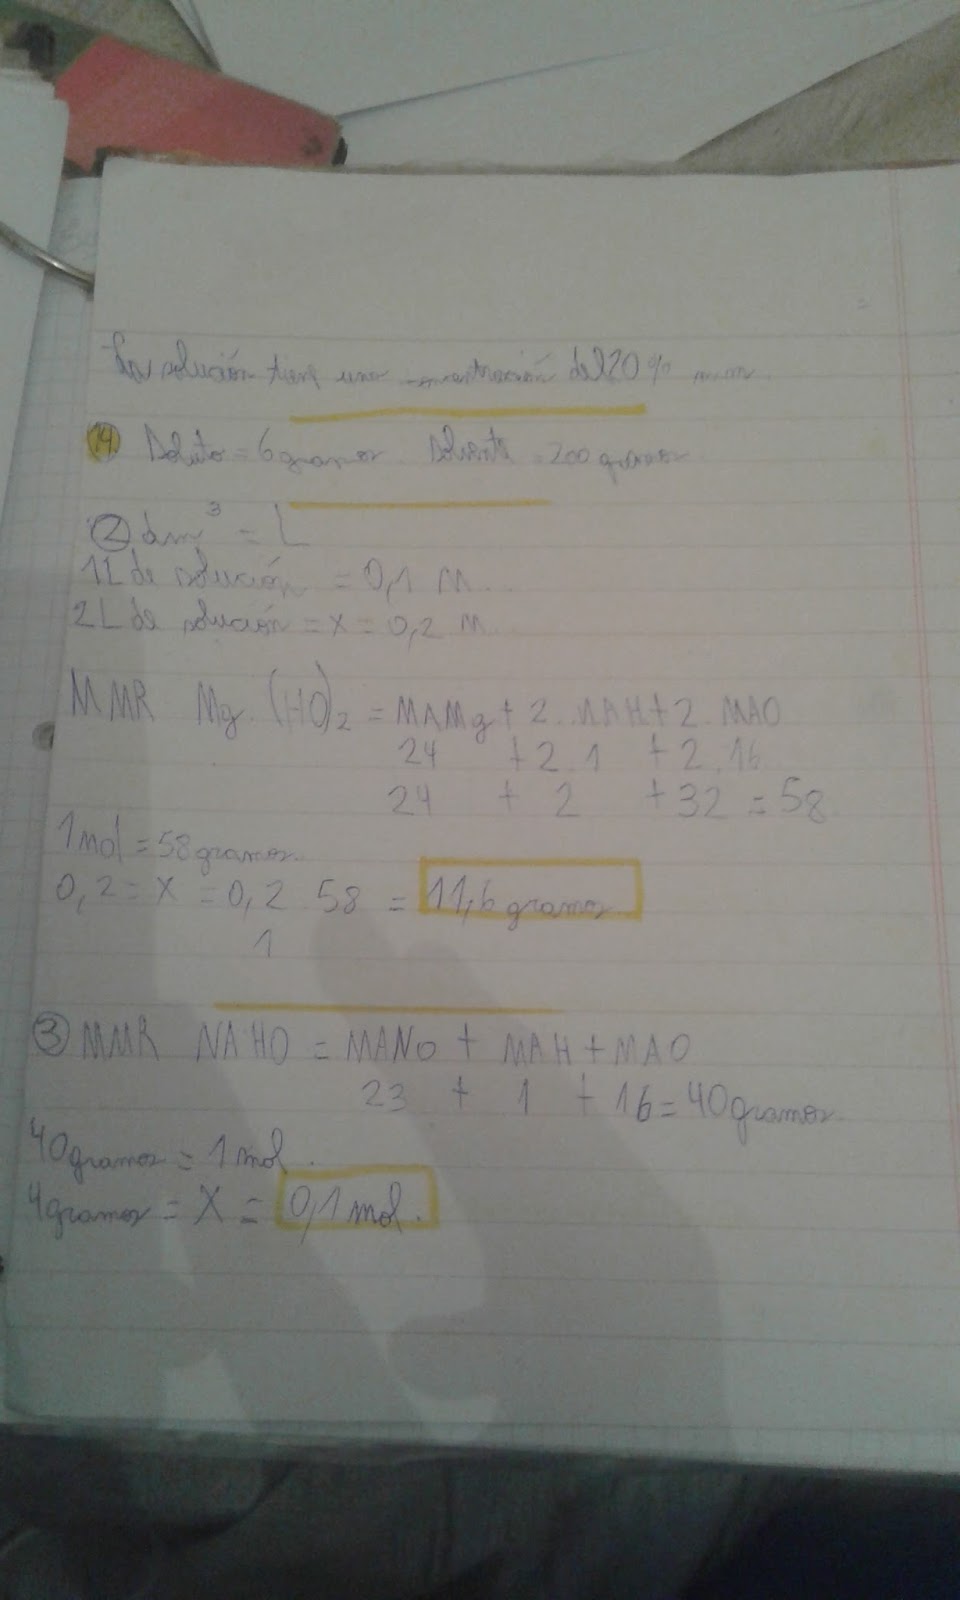 La solución tiene una concentración del 20% m.m.
14 Soluto = 6 gramos. Solvente = 200 gramos
2 dm³ = L
1L de solución = 0,1 M.
2L de solución = x = 0,2 M.
MMR Mg (HO)₂ = MAMg + 2. MAH + 2. MAO
24 + 2.1 + 2.16
24 + 2 + 32 = 58
1 mol = 58 gramos.
0,2 = X = 0,2 58 = 11,6 gramos.
1
3 MMR NAHO = MANa + MAH + MAO
23 + 1 + 16 = 40 gramos.
40 gramos = 1 mol.
4 gramos = X = 0,1 mol.